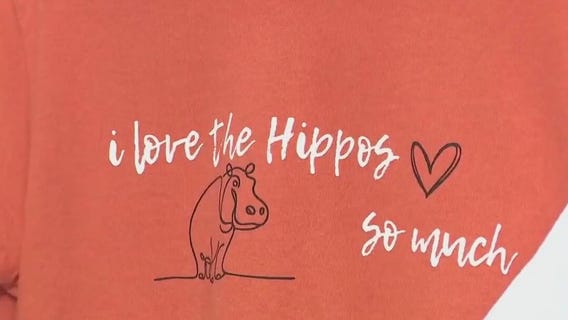 i love the Hippos
so much